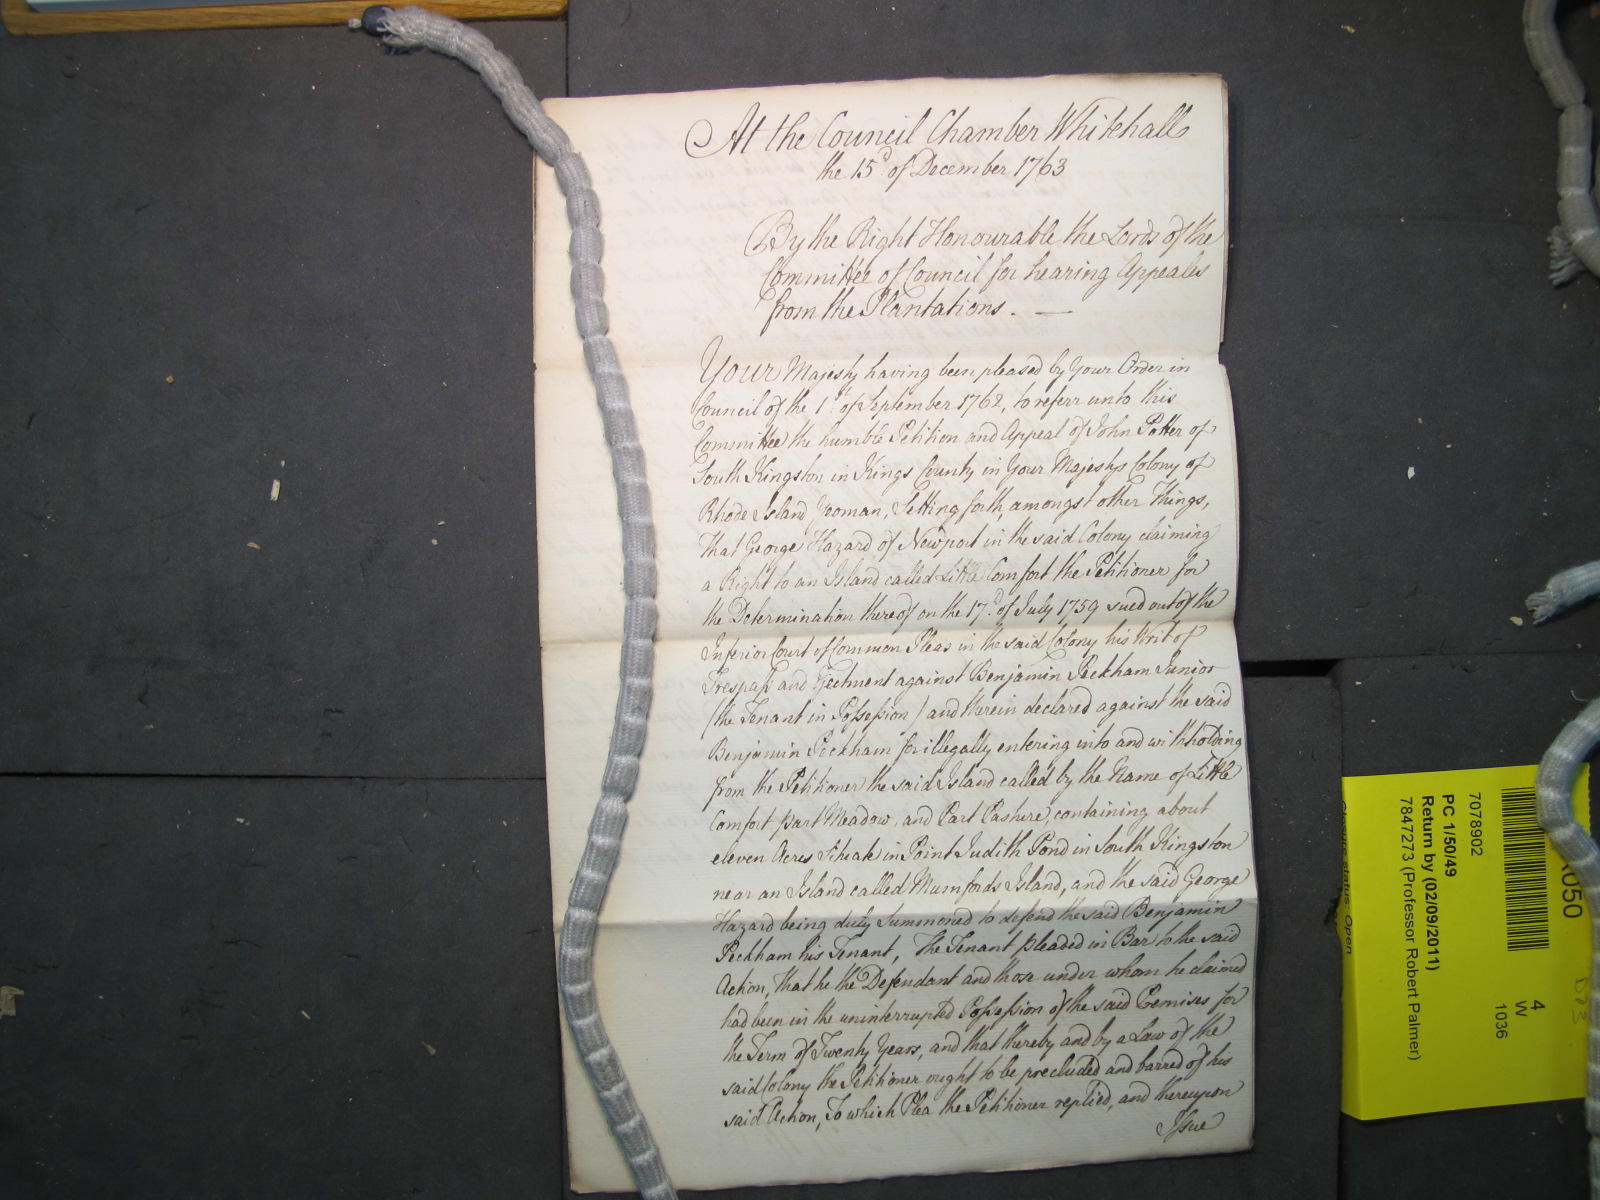 At the Council Chamber Whitehall
the 15.d of December 1763
By the Right Honourable the Lords of the
Committee of Council for hearing Appeales
from the Plantations. —
Your Majesty having been pleased by Your Order in
Council of the 1.st of September 1762, to referr unto this
Committee the humble Petition and Appeal of John Potter of
South Kingston in Kings County in Your Majestys Colony of
Rhode Island Yeoman, Setting forth, amongst other Things,
that George Hazard of Newport in the said Colony claiming
a Right to an Island called Little Comfort the Petitioner for
the Determination thereof on the 17.d of July 1759 sued out of the
Inferior Court of Common Pleas in the said Colony his Writ of
Trespass and Ejectment against Benjamin Peckham Junior
(the Tenant in Possession) and therein declared against the said
Benjamin Peckham for illegally entering into and withholding
from the Petitioner the said Island called by the Name of Little
Comfort part Meadow, and Part Pasture, containing about
eleven Acres Situate in Point Judith Pond in South Kingston
near an Island called Mumfords Island, and the said George
Hazard being duly Summoned to defend the said Benjamin
Peckham his Tenant, The Tenant pleaded in Bar to the said
Action, that he the Defendant and those under whom he claimed
had been in the uninterrupted Possession of the said Premises for
the Term of Twenty Years, and that thereby and by a Law of the
said Colony the Petitioner ought to be precluded and barred of his
said Action, To which Plea the Petitioner replied, and thereupon
Issue
7078902
PC 1/50/49
Return by (02/09/2011)
7847273 (Professor Robert Palmer)
4
W
1036
Closure status: Open